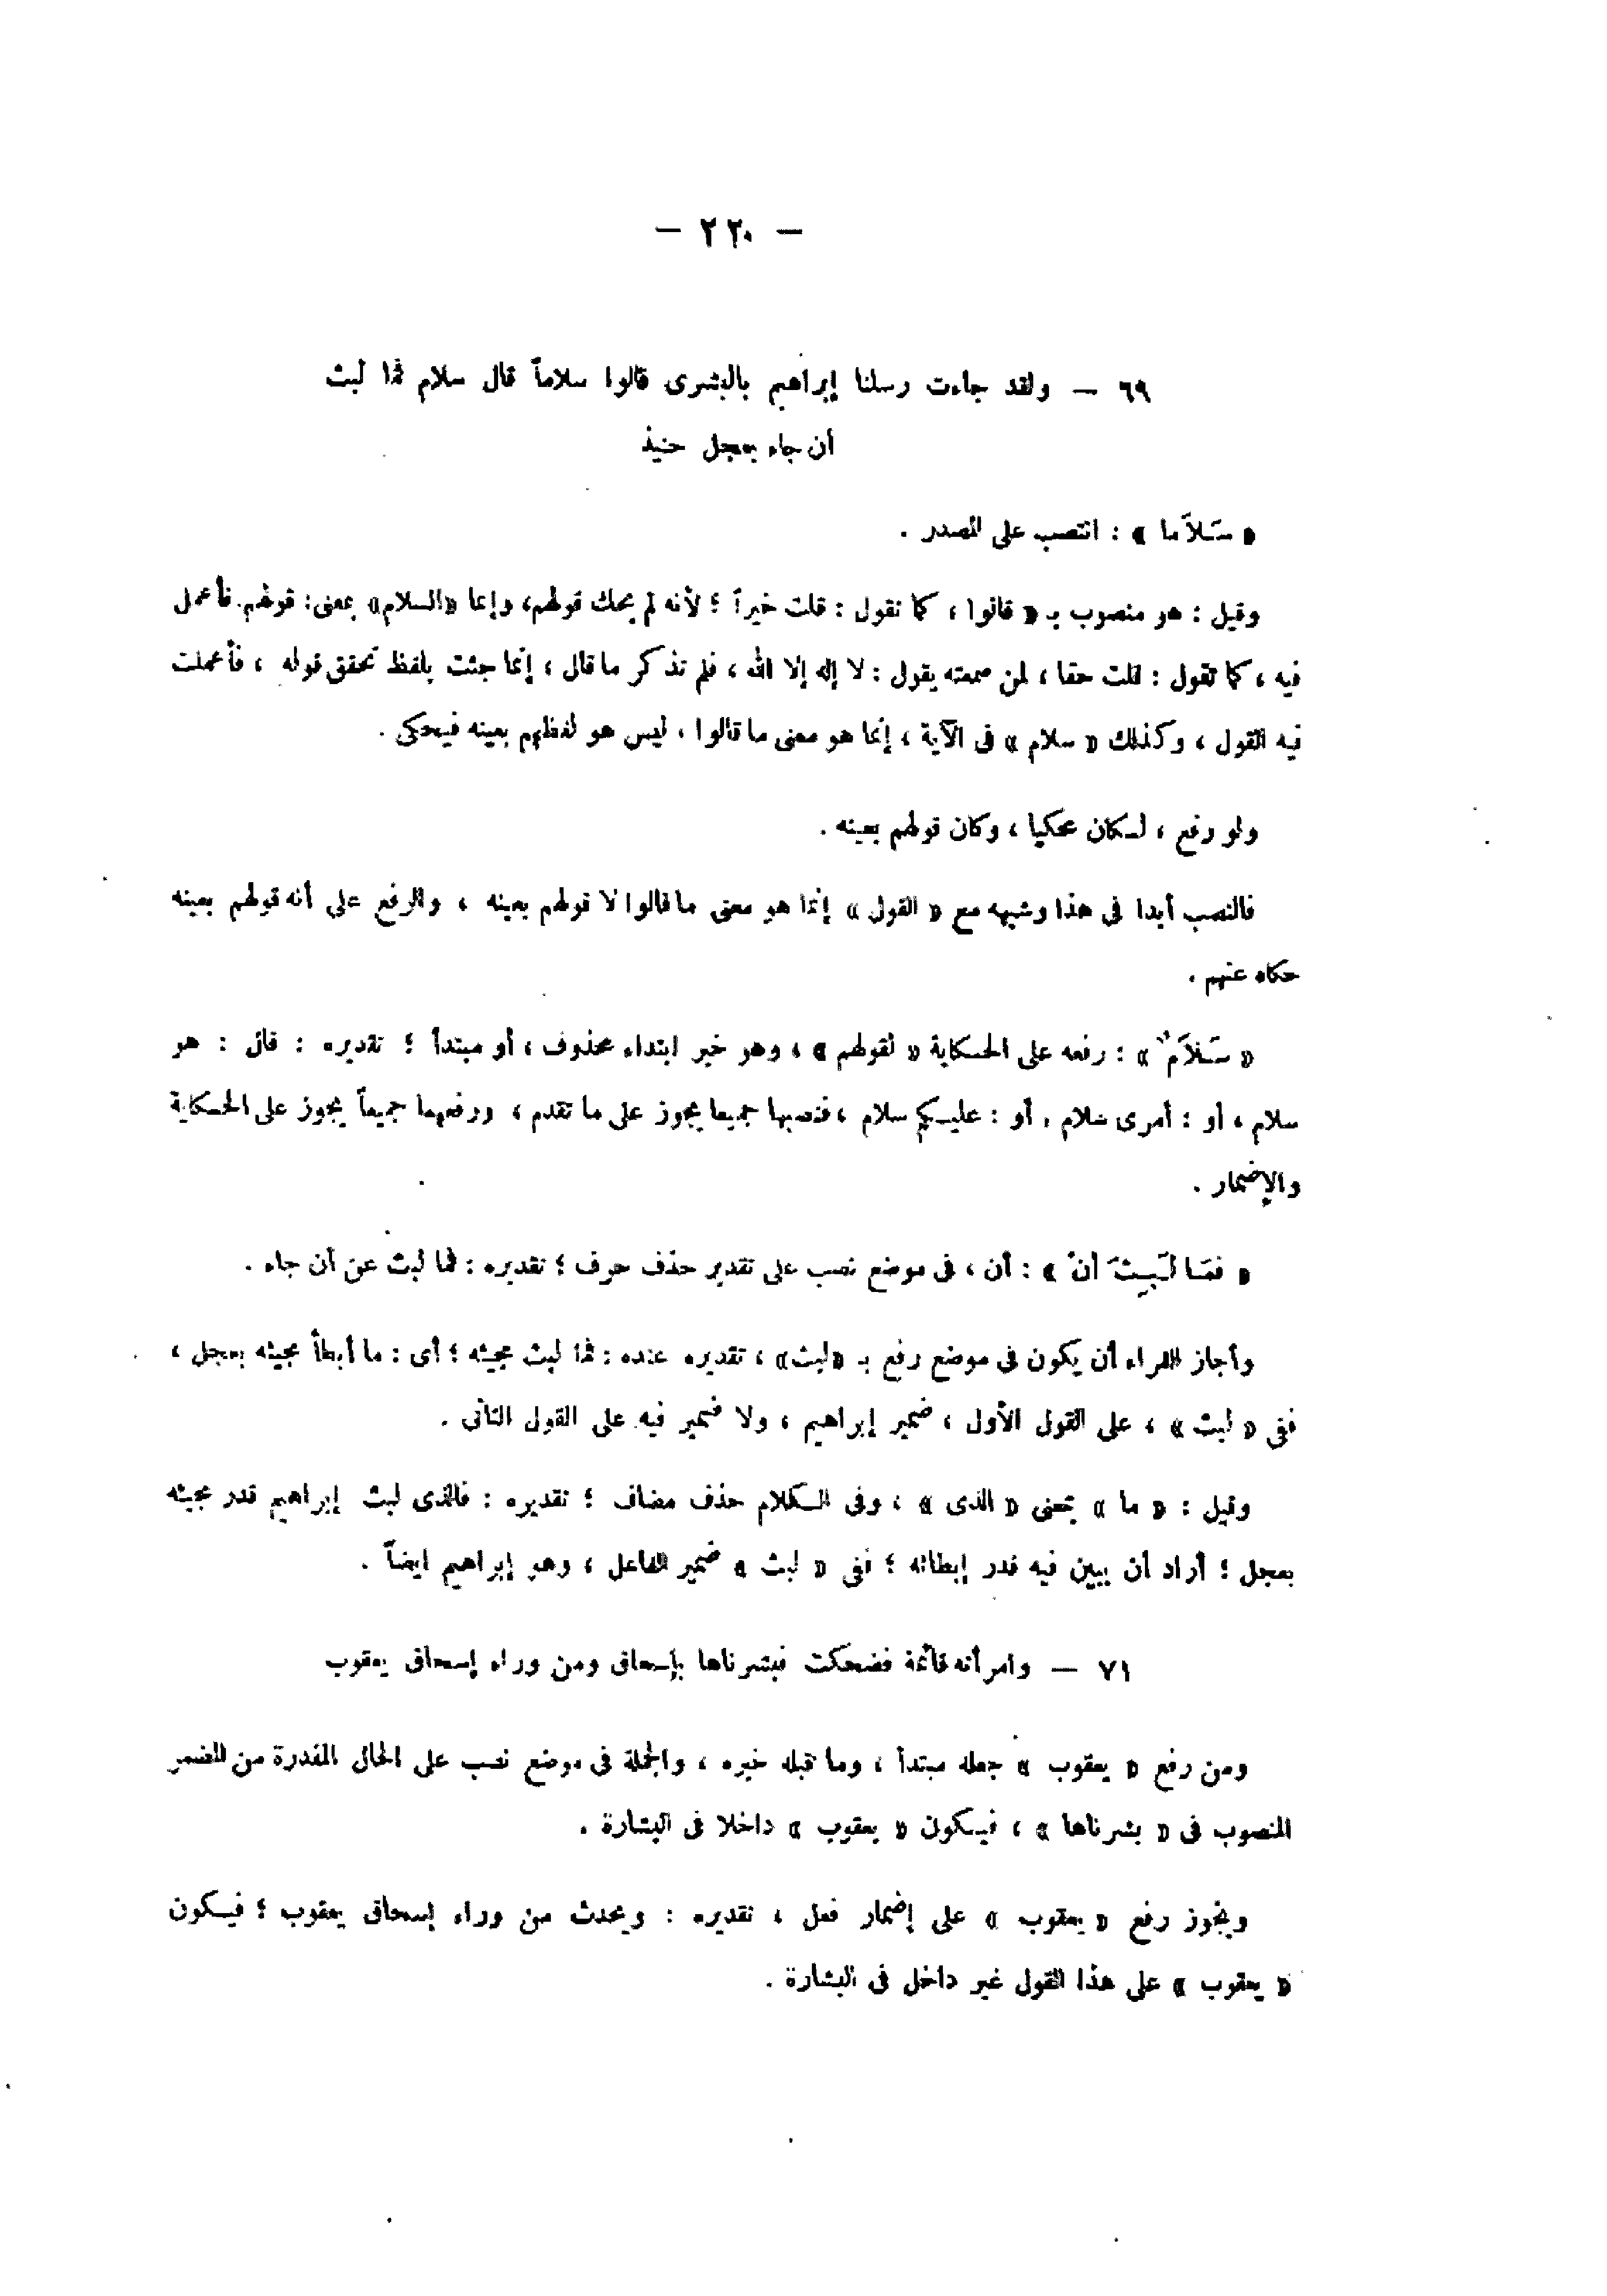 — ٢٢٠ —
٦٩ — ولقد جاءت رسلنا إبراهيم بالبشرى قالوا سلاماً قال سلام فما لبث
أن جاء بعجل حنيذ
« سَلاَما » : انتصب على المصدر .
وقيل : هو منصوب بـ « قالوا ، كما تقول : قلت خيراً ؛ لأنه لم يحك قولهم، وإنما «السلام» بمعنى: قولهم. فأعمل
فيه ، كما تقول : قلت حقا ، لمن سمعته يقول : لا إله إلا الله ، فلم تذكر ما قال ، إنما جئت بلفظ تحقق قوله ، فأعملت
فيه القول ، وكذلك « سلام » فى الآية ، إنما هو معنى ما قالوا ، ليس هو لفظهم بعينه فيحكى .
ولو رفع ، لكان محكيا ، وكان قولهم بعينه .
فالنصب أبدا فى هذا وشبهه مع « القول » إنما هو معنى ما قالوا لا قولهم بعينه ، والرفع على أنه قولهم بعينه
حكاه عنهم .
« سَلاَمٌ » : رفعه على الحكاية « لقولهم » ، وهو خبر ابتداء محذوف ، أو مبتدأ ؛ تقديره : قال : هو
سلام ، أو : أمرى سلام ، أو : عليكم سلام ، فنصبها جميعا يجوز على ما تقدم ، ورفعهما جميعاً يجوز على الحكاية
والإضمار .
« فمَا لَبِثَ أنْ » : أن ، فى موضع نصب على تقدير حذف حرف ؛ تقديره : فما لبث عن أن جاء .
وأجاز الفراء أن يكون فى موضع رفع بـ «لبث» ، تقديره عنده : فما لبث مجيئه ؛ أى : ما أبطأ مجيئه بعجل ،
ففى « لبث » ، على القول الأول ، ضمير إبراهيم ، ولا ضمير فيه على القول الثانى .
وقيل : « ما » بمعنى « الذى » ، وفى الكلام حذف مضاف ؛ تقديره : فالذى لبث إبراهيم قدر مجيئه
بعجل ؛ أراد أن يبين فيه قدر إبطائه ؛ ففى « لبث » ضمير الفاعل ، وهو إبراهيم ايضاً .
٧١ — وامرأته قائمة فضحكت فبشرناها بإسحاق ومن وراء إسحاق يعقوب
ومن رفع « يعقوب » جعله مبتدأ ، وما قبله خبره ، والجملة فى موضع نصب على الحال المقدرة من المضمر
المنصوب فى « بشرناها » ، فيكون « يعقوب » داخلا فى البشارة .
ويجوز رفع « يعقوب » على إضمار فعل ، تقديره : ويحدث من وراء إسحاق يعقوب ؛ فيكون
« يعقوب » على هذا القول غير داخل فى البشارة .